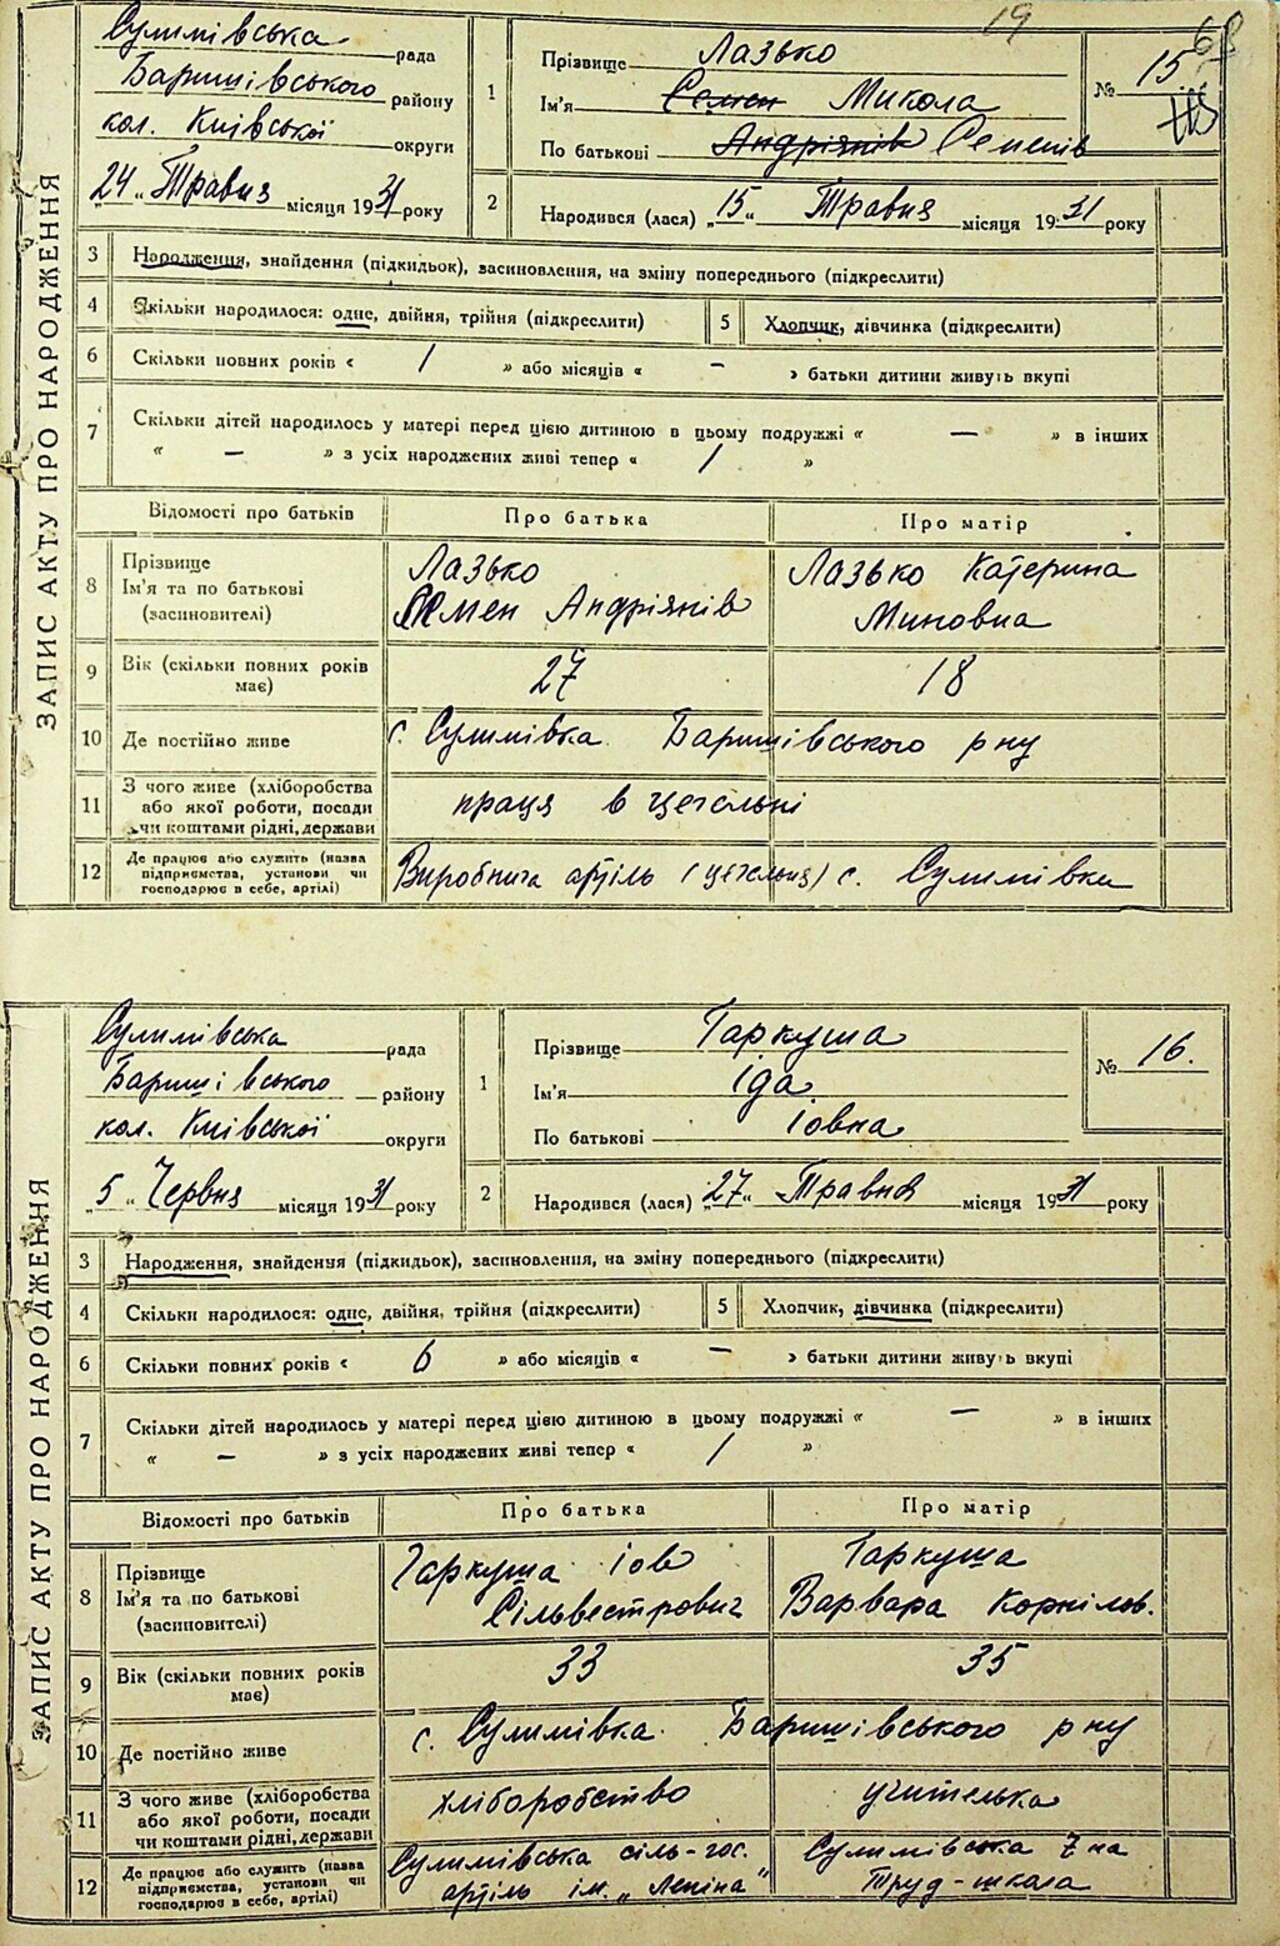 19
68
ЗАПИС АКТУ ПРО НАРОДЖЕННЯ
Сулимівська рада
Баришівського району
кол. Київської округи
„24„ Травня місяця 1931 року
1
Прізвище Лазько
Ім'я Семен Микола
По батькові Андріянів Семенів
№ 15
2
Народився (лася) „15„ Травня місяця 1931 року
3 Народження, знайдення (підкидьок), засиновлення, на зміну попереднього (підкреслити)
4 Скільки народилося: одне, двійня, трійня (підкреслити)
5 Хлопчик, дівчинка (підкреслити)
6 Скільки повних років « 1 » або місяців « — » батьки дитини живуть вкупі
7 Скільки дітей народилось у матері перед цією дитиною в цьому подружжі « — » в інших
« — » з усіх народжених живі тепер « 1 »
Відомості про батьків Про батька Про матір
8 Прізвище
Ім'я та по батькові
(засиновителі)
Лазько
Семен Андріянів
Лазько Катерина
Миновна
9 Вік (скільки повних років
має)
27 18
10 Де постійно живе с. Сулимівка Баришівського р ну
11 З чого живе (хліборобства
або якої роботи, посади
чи коштами рідні, держави
праця в цегельні
12 Де працює або служить (назва
підприємства, установи чи
господарює в себе, артілі)
Виробнича артіль (цегельня) с. Сулимівки
ЗАПИС АКТУ ПРО НАРОДЖЕННЯ
Сулимівська рада
Баришівського району
кол. Київської округи
„5„ Червня місяця 1931 року
1
Прізвище Гаркуша
Ім'я Іда
По батькові Іовна
№ 16.
2
Народився (лася) „27„ Травня місяця 1931 року
3 Народження, знайдення (підкидьок), засиновлення, на зміну попереднього (підкреслити)
4 Скільки народилося: одне, двійня, трійня (підкреслити)
5 Хлопчик, дівчинка (підкреслити)
6 Скільки повних років « 6 » або місяців « — » батьки дитини живуть вкупі
7 Скільки дітей народилось у матері перед цією дитиною в цьому подружжі « — » в інших
« — » з усіх народжених живі тепер « 1 »
Відомості про батьків Про батька Про матір
8 Прізвище
Ім'я та по батькові
(засиновителі)
Гаркуша Іов
Сільвестрович
Гаркуша
Варвара Корнілов.
9 Вік (скільки повних років
має)
33 35
10 Де постійно живе с. Сулимівка Баришівського р ну
11 З чого живе (хліборобства
або якої роботи, посади
чи коштами рідні, держави
хліборобство
учителька
12 Де працює або служить (назва
підприємства, установи чи
господарює в себе, артілі)
Сулимівська сіль-гос.
артіль ім. „Леніна"
Сулимівська 7 на
Труд-школа